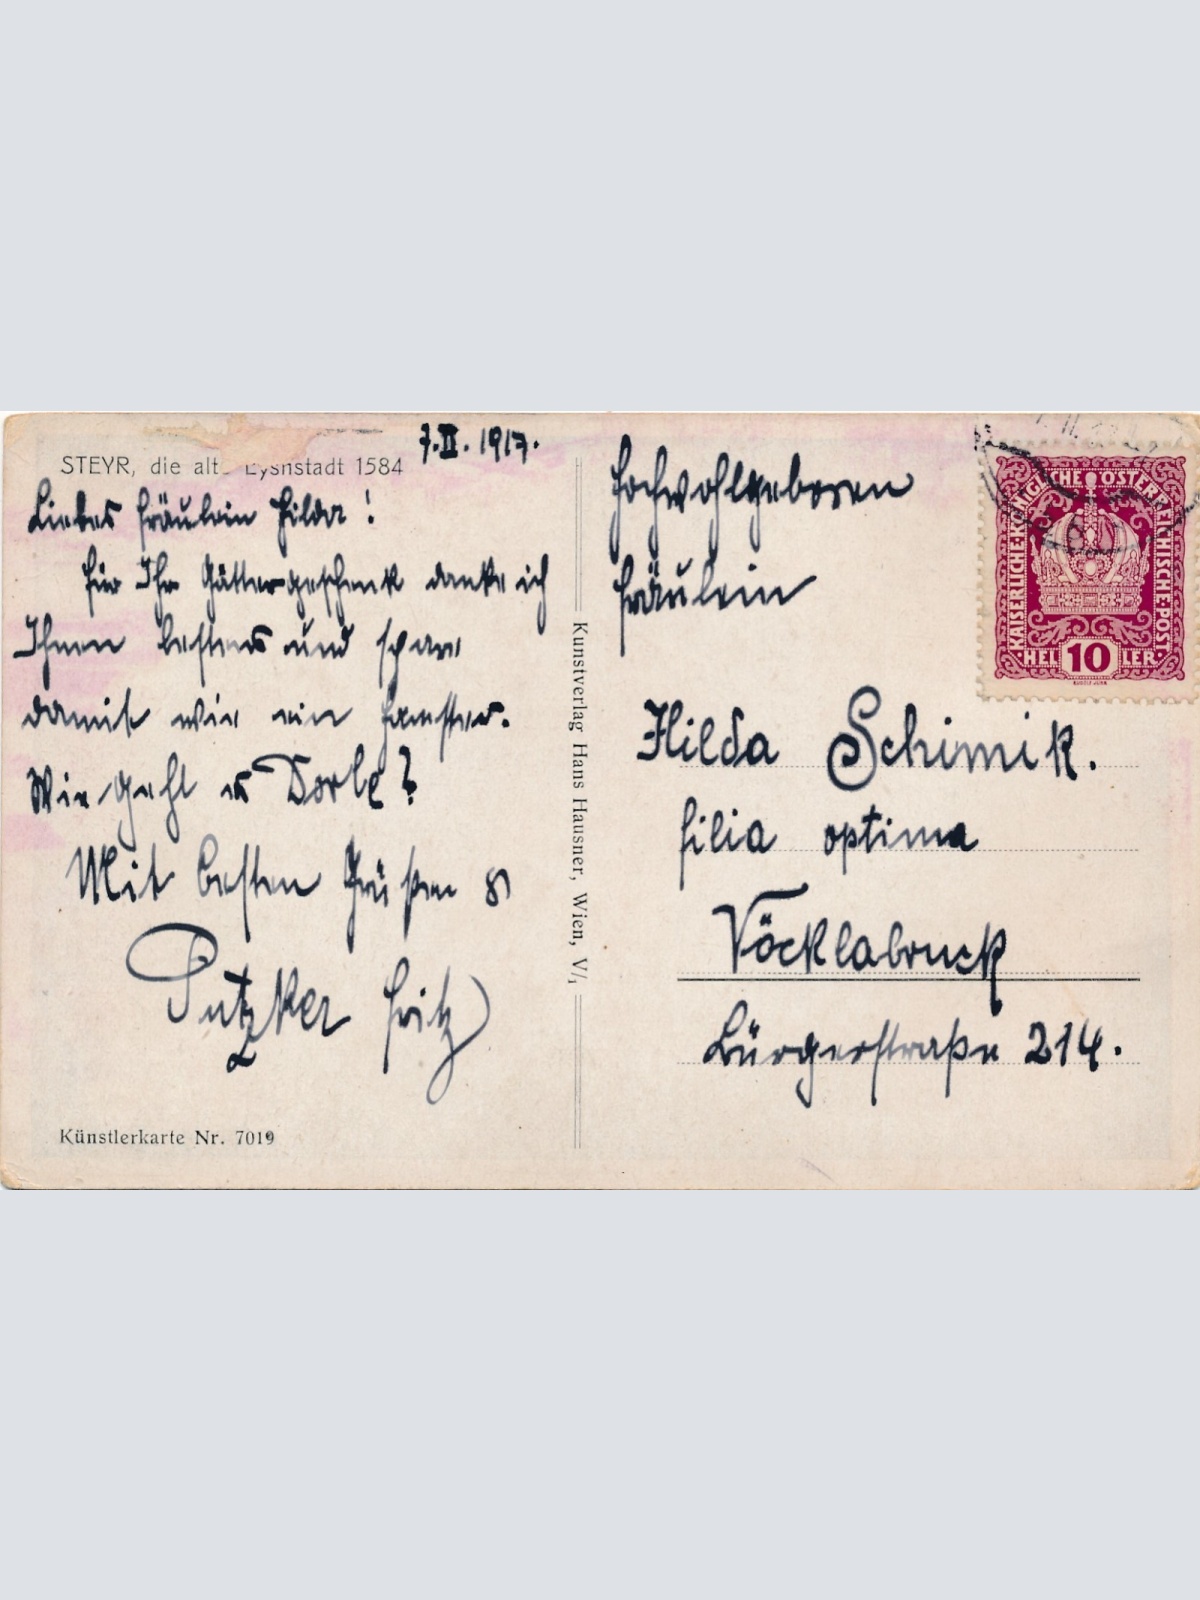 7.II.1917.
STEYR, die alte Eysnstadt 1584
Liebes Fräulein Hilda!
Für Ihr Göttergeschenk danke ich
Ihnen bestens und spare
damit wie ein Hamster.
Wie geht es Dorle?
Mit besten Grüßen
Putzker Fritz
Künstlerkarte Nr. 7019
Kunstverlag Hans Hausner, Wien, V/1
Hochwohlgeboren
Fräulein
Hilda Schimik.
filia optima
Vöcklabruck
Bürgerstraße 214.
KAISERLICHE KÖNIGLICHE ÖSTERREICHISCHE POST
HELLER
10